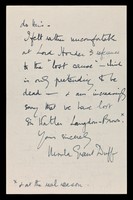 do this.
I felt rather uncomfortable
at Lord Horder's reference
to the "lost cause" - which
is only pretending to be
dead - & am increasingly
sorry that we have lost
Sir Walter Langdon-Brown*
Yours sincerely
Ursula Grant Duff
* at the end